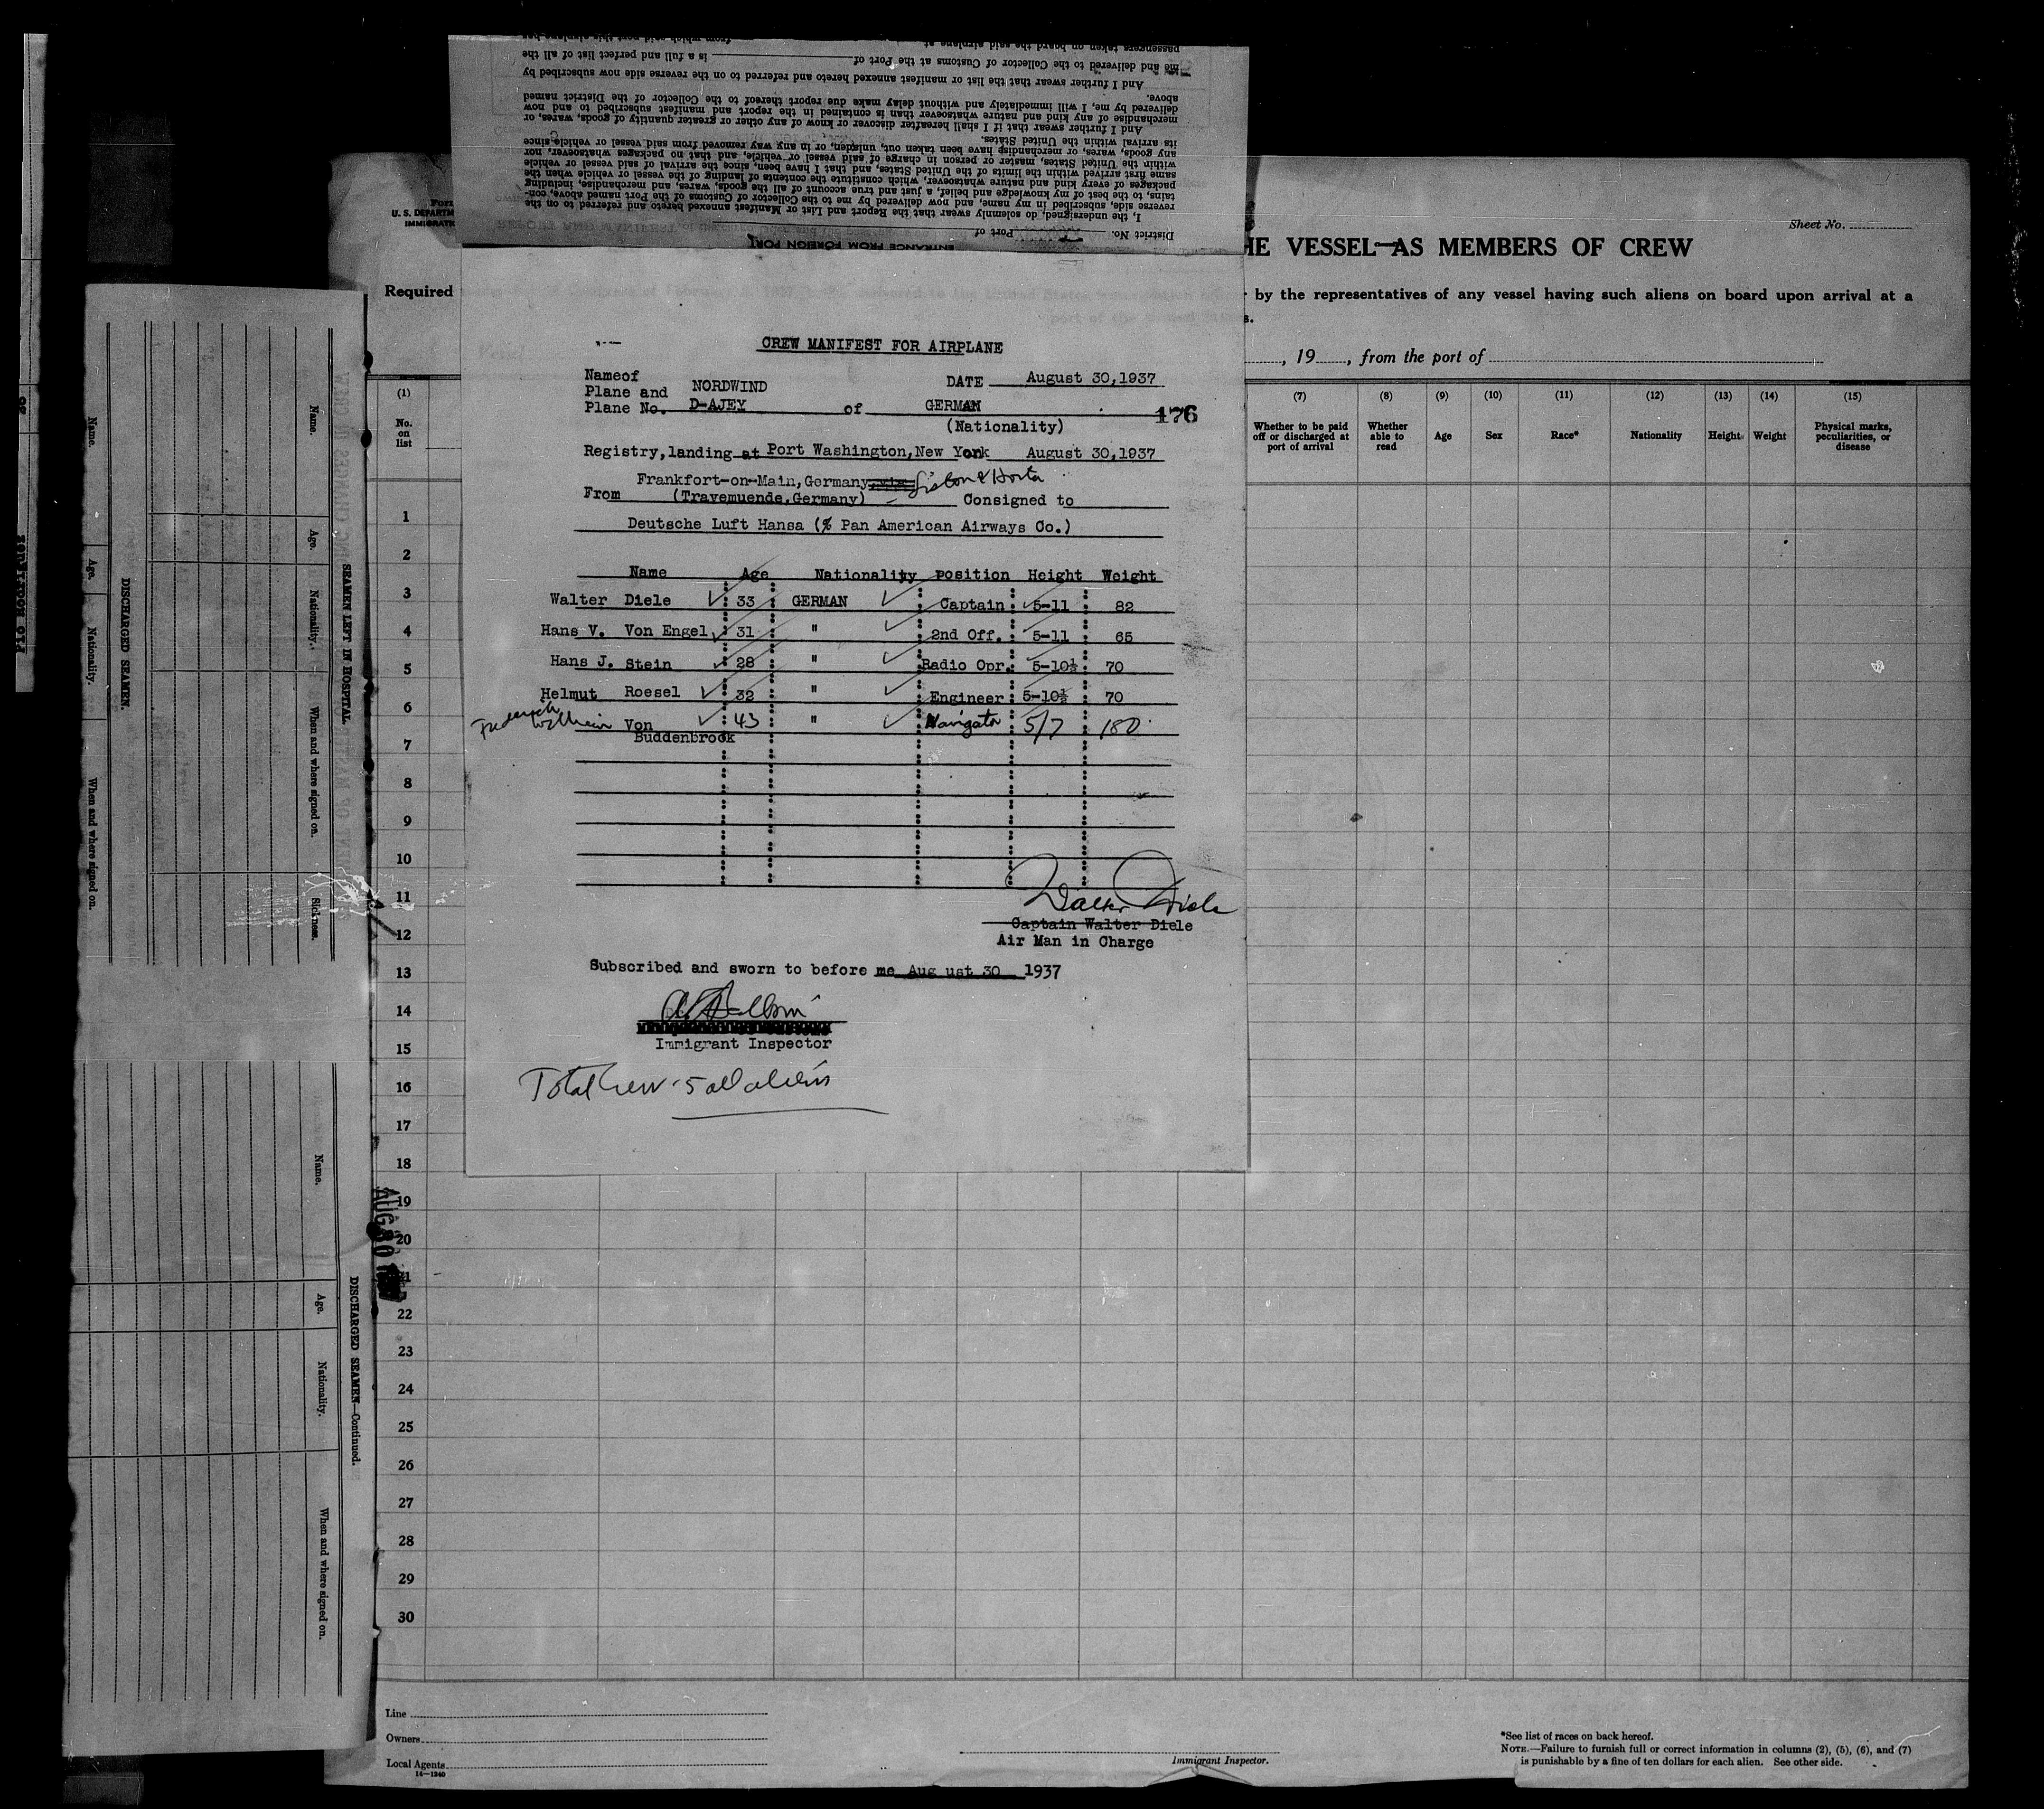 passengers taken on board the said airplane at
me and delivered to the Collector of Customs at the Port of is a full and perfect list of all the
And I further swear that the list or manifest annexed hereto and referred to on the reverse side now subscribed by
above.
delivered by me, I will immediately and without delay make due report thereof to the Collector of the District named
merchandise of any kind and nature whatsoever than is contained in the report and manifest subscribed to and now
And I further swear that if I shall hereafter discover or know of any other or greater quantity of goods, wares, or
its arrival within the United States.
any goods, wares, or merchandise have been taken out, unladen, or in any way removed from said vessel or vehicle since
within the United States, master or person in charge of said vessel or vehicle, and that no packages whatsoever, nor
same first arrived within the limits of the United States, and that I have been, since the arrival of said vessel or vehicle
packages of every kind and nature whatsoever, which constitute the contents of landing of the vessel or vehicle when the
tains, to the best of my knowledge and belief, a just and true account of all the goods, wares, and merchandise, including
reverse side, subscribed in my name, and now delivered by me to the Collector of Customs of the Port named above, con-
I, the undersigned, do solemnly swear that the Report and List or Manifest annexed hereto and referred to on the
District No. Port of
ENTRANCE FROM FOREIGN PORT
Form
U. S. DEPARTM
IMMIGRATI
Sheet No.
HE VESSEL AS MEMBERS OF CREW
Required
by the representatives of any vessel having such aliens on board upon arrival at a
s.
, 19 , from the port of
CREW MANIFEST FOR AIRPLANE
Nameof
Plane and NORDWIND DATE August 30,1937
Plane No. D-AJEY of GERMAN 176
(Nationality)
Registry, landing at Port Washington, New York August 30,1937
Frankfort-on-Main, Germany via Lisbon & Horta
From (Travemuende, Germany) Consigned to
Deutsche Luft Hansa (% Pan American Airways Co.)
Name Age Nationality Position Height Weight
Walter Diele 33 GERMAN Captain 5-11 82
Hans V. Von Engel 31 " 2nd Off. 5-11 65
Hans J. Stein 28 " Radio Opr. 5-10½ 70
Helmut Roesel 32 " Engineer 5-10½ 70
Frederich Wilhelm Von 43 " Navigator 5/7 180
Buddenbrook
Walter Diele
Captain Walter Diele
Air Man in Charge
Subscribed and sworn to before me Aug ust 30 1937
Immigrant Inspector
Total Crew - 5 all aliens
(1)
No.
on
list
(7)
Whether to be paid
off or discharged at
port of arrival
(8)
Whether
able to
read
(9)
Age
(10)
Sex
(11)
Race*
(12)
Nationality
(13)
Height
(14)
Weight
(15)
Physical marks,
peculiarities, or
disease
1
2
3
4
5
6
7
8
9
10
11
12
13
14
15
16
17
18
19
20
21
22
23
24
25
26
27
28
29
30
AUG 30
Line
Owners
Local Agents
14—1240
Immigrant Inspector.
*See list of races on back hereof.
NOTE.—Failure to furnish full or correct information in columns (2), (5), (6), and (7)
is punishable by a fine of ten dollars for each alien. See other side.
SEAMEN LEFT IN HOSPITAL
Name.
Age.
Nationality.
When and where signed on.
Sickness.
DISCHARGED SEAMEN.
Name.
Age.
Nationality.
When and where signed on.
DISCHARGED SEAMEN—Continued.
Name.
Age.
Nationality.
When and where signed on.